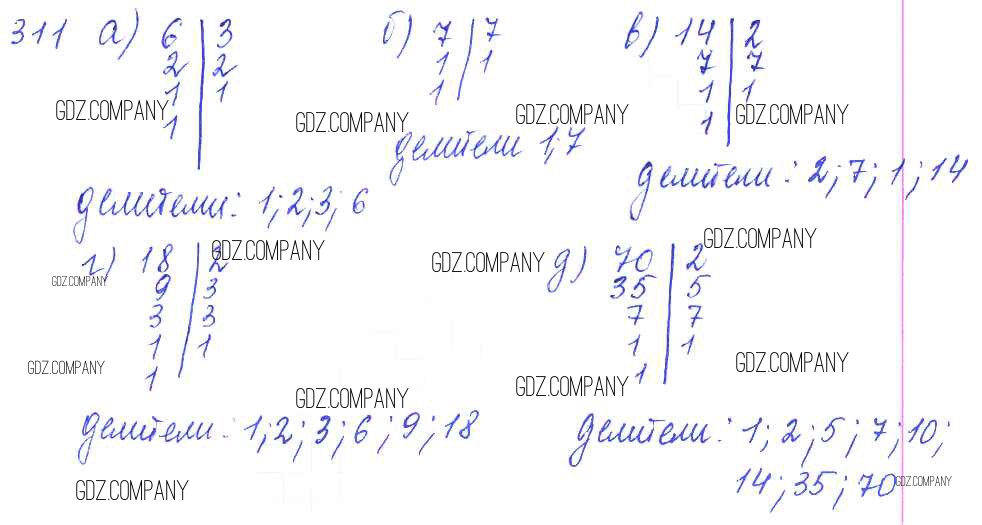 311 а) 6 | 3 б) 7 | 7 в) 14 | 2
2 | 2 1 | 1 7 | 7
1 | 1 1 1 | 1
1 1
GDZ.COMPANY GDZ.COMPANY GDZ.COMPANY GDZ.COMPANY
делители 1;7
делители: 2;7;1;14
делители: 1;2;3;6
г) 18 | 2 д) 70 | 2
9 | 3 35 | 5
3 | 3 7 | 7
1 | 1 1 | 1
1 1
GDZ.COMPANY GDZ.COMPANY GDZ.COMPANY GDZ.COMPANY
GDZ.COMPANY GDZ.COMPANY GDZ.COMPANY GDZ.COMPANY
делители: 1;2;3;6;9;18
делители: 1;2;5;7;10;
14;35;70
GDZ.COMPANY GDZ.COMPANY